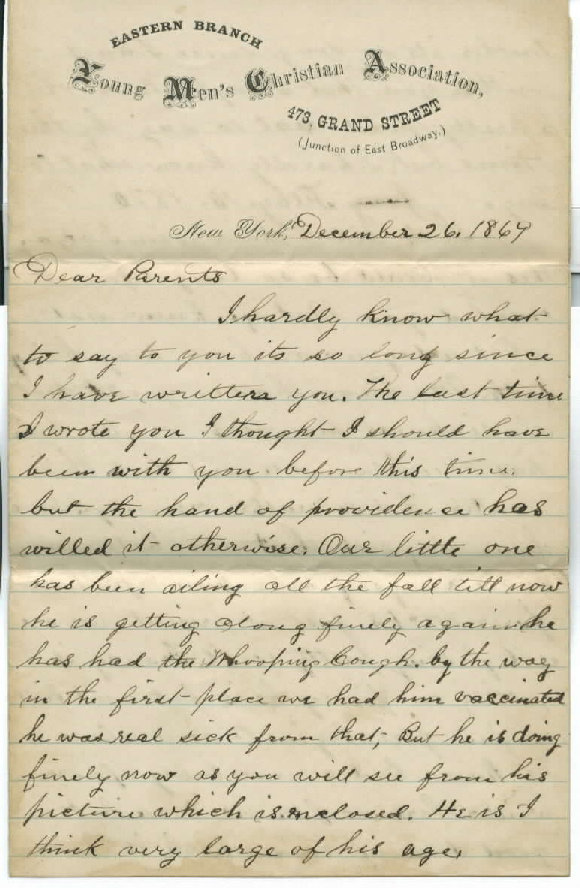 EASTERN BRANCH
Young Men's Christian Association,
473, GRAND STREET
(Junction of East Broadway.)
New York, December 26. 1869
Dear Parents
I hardly know what
to say to you its so long since
I have written you. The last time
I wrote you I thought I should have
been with you before this time.
but the hand of providence has
willed it otherwise. Our little one
has been ailing all the fall till now
he is getting along finely again he
has had the Whooping Cough. by the way
in the first place we had him vaccinated
he was real sick from that, But he is doing
finely now as you will see from his
picture which is enclosed. He is I
think very large of his age.